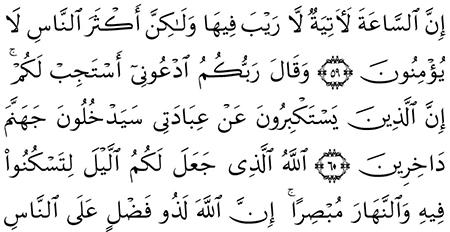 إِنَّ ٱلسَّاعَةَ لَأٓتِيَةٌ لَّا رَيْبَ فِيهَا وَلَٰكِنَّ أَكْثَرَ ٱلنَّاسِ لَا
يُؤْمِنُونَ ٥٩ وَقَالَ رَبُّكُمُ ٱدْعُونِىٓ أَسْتَجِبْ لَكُمْ ۚ
إِنَّ ٱلَّذِينَ يَسْتَكْبِرُونَ عَنْ عِبَادَتِى سَيَدْخُلُونَ جَهَنَّمَ
دَاخِرِينَ ٦٠ ٱللَّهُ ٱلَّذِى جَعَلَ لَكُمُ ٱلَّيْلَ لِتَسْكُنُوا۟
فِيهِ وَٱلنَّهَارَ مُبْصِرًا ۚ إِنَّ ٱللَّهَ لَذُو فَضْلٍ عَلَى ٱلنَّاسِ